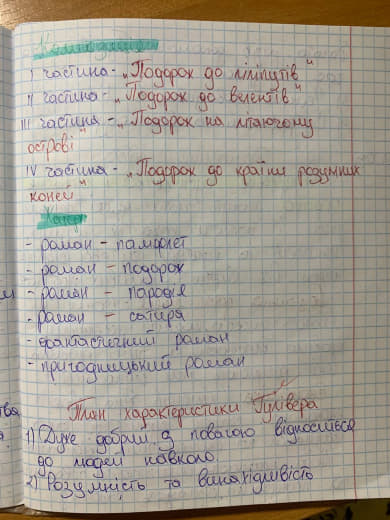 Композиція
І частина - „Подорож до ліліпутів"
ІІ частина - „Подорож до велетів"
ІІІ частина - „Подорож на літаючому
острові"
IV частина - „Подорож до країни розумних
коней"
Жанр
- роман - памфлет
- роман - подорож
- роман - пародія
- роман - сатира
- фантастичний роман
- пригодницький роман
План характеристики Гулівера
1) Дуже добрий, з повагою відноситься
до людей навколо.
2) Розумність та винахідливість